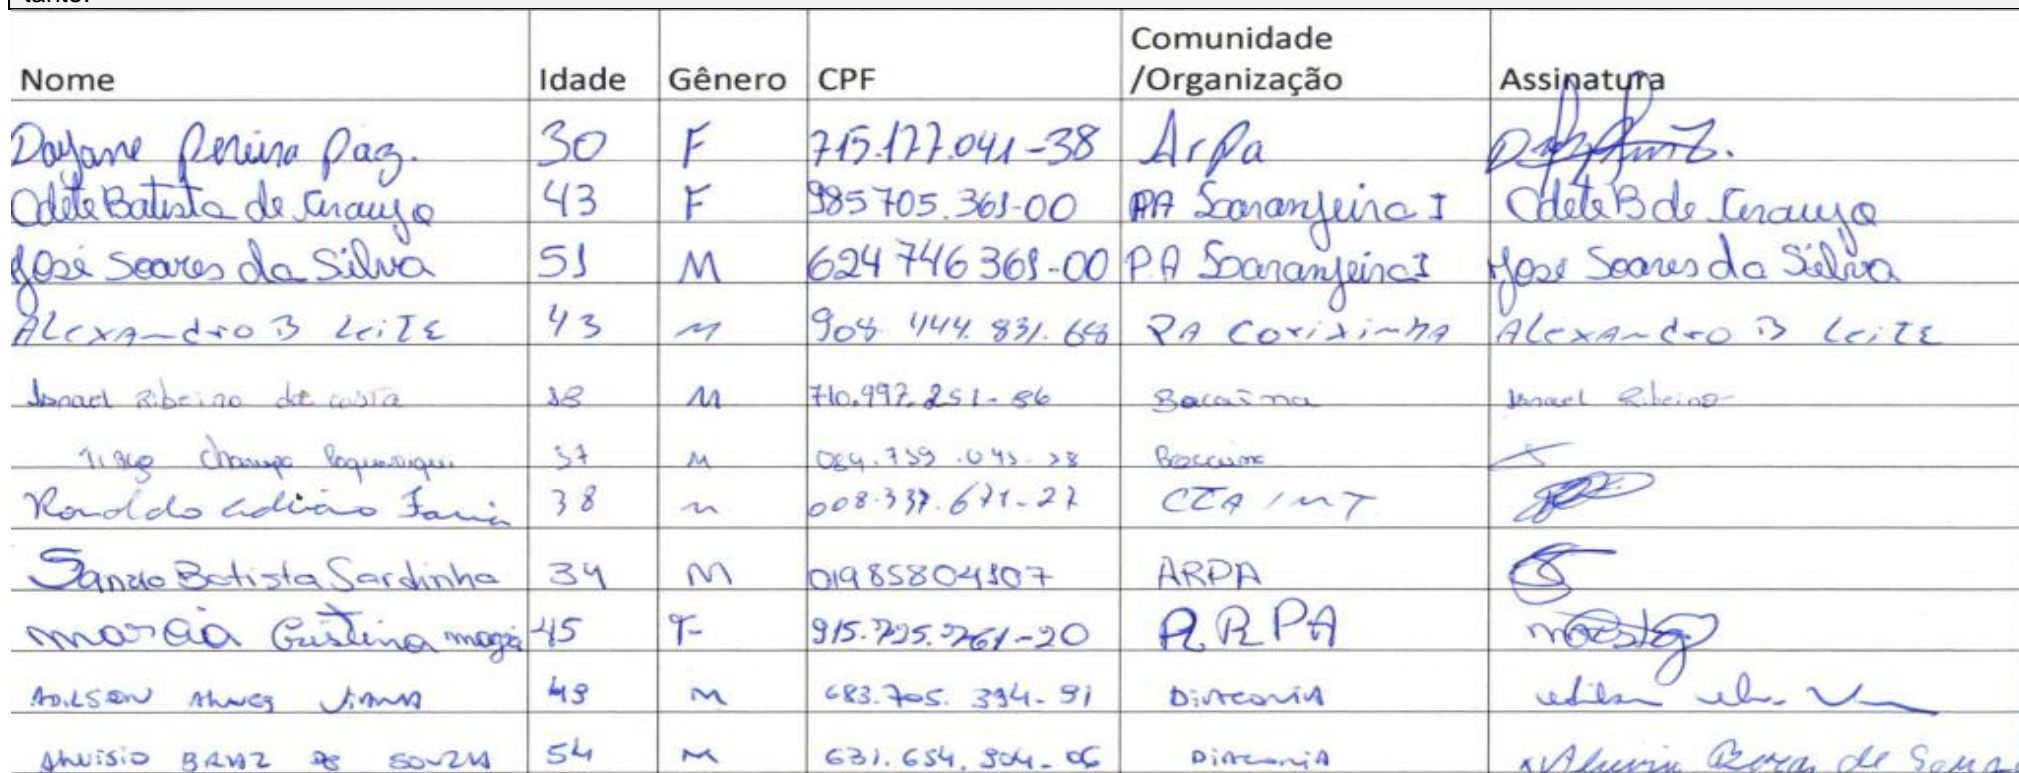 tanto.
Nome Idade Gênero CPF Comunidade /Organização Assinatura
Dayane Pereira Paz. 30 F 715.177.041-38 Arpa
Odete Batista de Araujo 43 F 985705.361-00 PA Laranjeira I Odete B de Araujo
José Soares da Silva 51 M 624 746 361-00 P.A Laranjeira I José Soares da Silva
ALexAndro B LeiTE 43 M 908. 444. 831. 68 PA CorixinhA ALexAndro B LeiTE
Ismael Ribeiro da costa 38 M 710.997.251-86 Bocaina Ismael Ribeiro
37 M Bocaina
Ronaldo Adriano Faria 38 M 008.337.671-27 CTA / MT
Sanzio Batista Sardinha 34 M 01985804107 ARPA
marcia Cristina 45 F 915.725.761-20 ARPA
ADILSON ALVES VIANA 49 M 683.705.394-91 DIACONIA
ALUISIO BRAZ DE SOUZA 54 M 631.654.904-06 DIACONIA